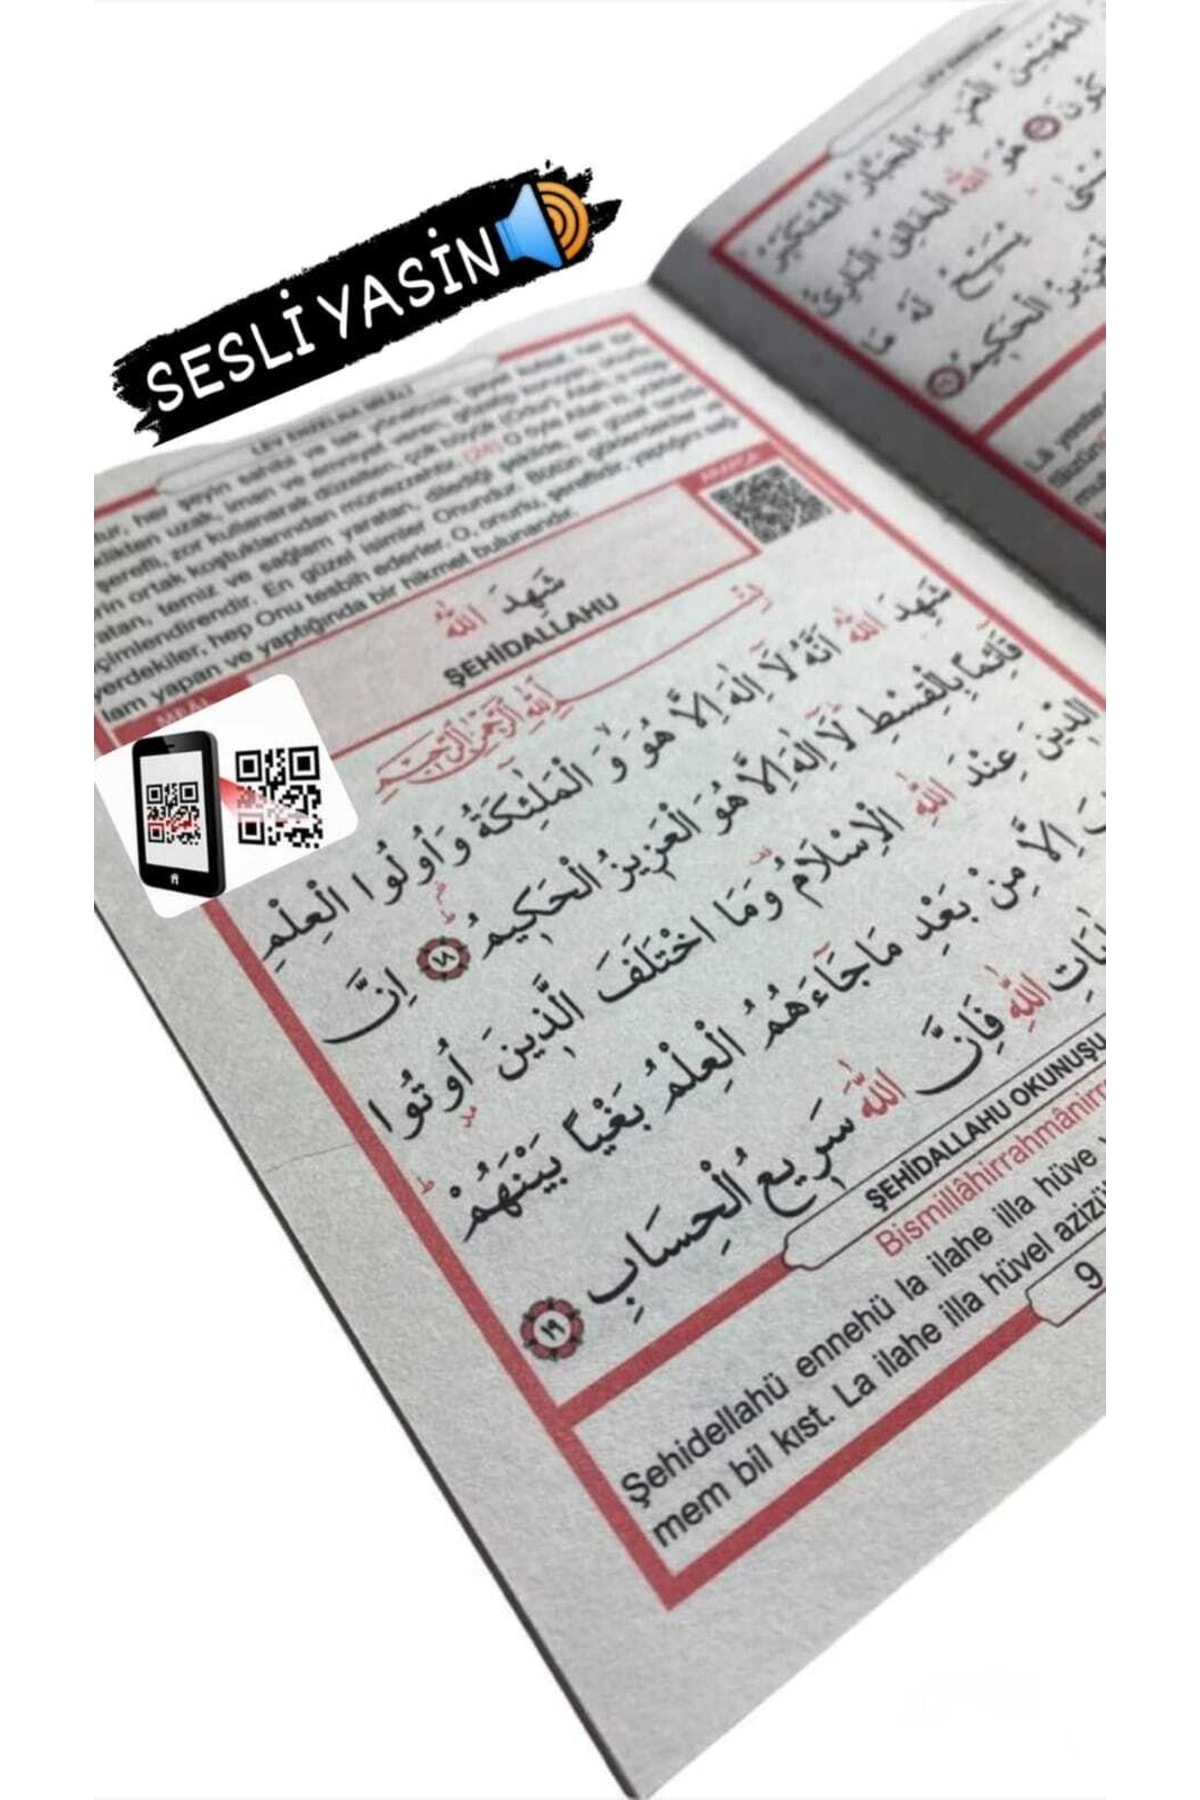 SESLİ YASİN
LEV ENZELNA MEÂLİ
tur, her şeyin sahibi ve tek yöneticisi, gayet kutsal, her tür
sikten uzak, iman ve emniyet veren, gözetip koruyan, onurlu,
şerefli, zor kullanarak düzelten, çok büyük (Odur). Allah, o müş-
rin ortak koştuklarından münezzehtir. (24) O öyle Allah ki, yoktan
atan, temiz ve sağlam yaratan, dilediği şekilde, en güzel tarzda
çimlendirendir. En güzel isimler Onundur. Bütün göklerdekiler ve
yerdekiler, hep Onu tesbih ederler. O, onurlu, şereflidir, yaptığını sağ-
lam yapan ve yaptığında bir hikmet bulunandır.
MEÂL
شَهِدَ اللهُ
ŞEHİDALLAHU
بِسْــــمِ اللهِ الرَّحْمٰنِ الرَّحِيمِ
شَهِدَ اللهُ اَنَّهُ لَٓا اِلٰهَ اِلَّا هُوَ وَالْمَلٰٓئِكَةُ وَاُولُوا الْعِلْمِ
قَٓائِماً بِالْقِسْطِ لَٓا اِلٰهَ اِلَّا هُوَ الْعَزِيزُ الْحَكِيمُ ١٨ اِنَّ
الدِّينَ عِنْدَ اللهِ الْاِسْلَامُ وَمَا اخْتَلَفَ الَّذِينَ اُوتُوا
اِلَّا مِنْ بَعْدِ مَا جَٓاءَهُمُ الْعِلْمُ بَغْياً بَيْنَهُمْ
اللهِ فَاِنَّ اللهَ سَرِيعُ الْحِسَابِ ١٩
ŞEHİDALLAHU OKUNUŞU
Bismillâhirrahmânirr
Şehidellahü ennehü la ilahe illa hüve v
mem bil kıst. La ilahe illa hüvel azizül
9
الْمُهَيْمِنُ الْعَزِيزُ الْجَبَّارُ الْمُتَكَبِّرُ
هُوَ اللهُ الْخَالِقُ الْبَارِئُ
لَهُ
الْحَكِيمُ
Lâ yestevî